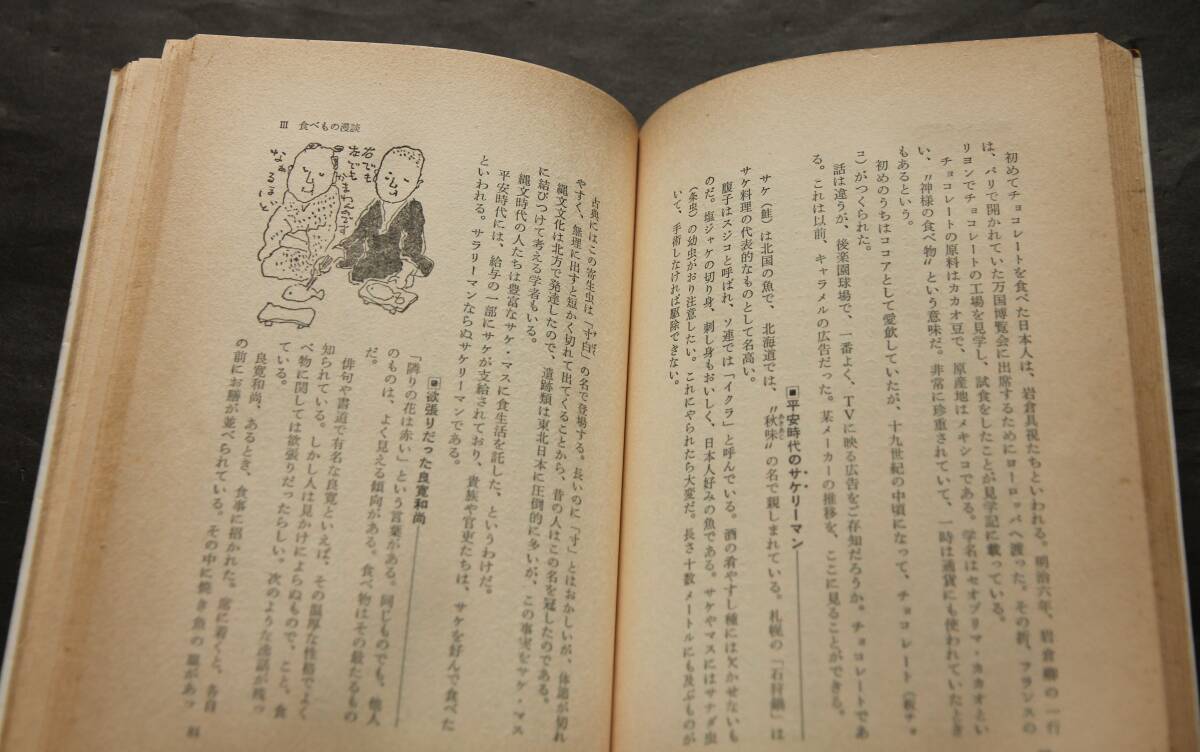 初めてチョコレートを食べた日本人は、岩倉具視たちといわれる。明治六年、岩倉卿の一行
は、パリで開かれていた万国博覧会に出席するためにヨーロッパへ渡った。その折、フランスの
リヨンでチョコレートの工場を見学し、試食をしたことが見学記に載っている。
チョコレートの原料はカカオ豆で、原産地はメキシコである。学名はセオブリマ・カカオとい
い、〝神様の食べ物〟という意味だ。非常に珍重されていて、一時は通貨にも使われていたとき
もあるという。
初めのうちはココアとして愛飲していたが、十九世紀の中頃になって、チョコレート（板チョ
コ）がつくられた。
話は違うが、後楽園球場で、一番よく、TVに映る広告をご存知だろうか。チョコレートであ
る。これは以前、キャラメルの広告だった。某メーカーの推移を、ここに見ることができる。
■平安時代のサケリーマン
サケ（鮭）は北国の魚で、北海道では、〝秋味〟の名で親しまれている。札幌の「石狩鍋」は
あきあじ
サケ料理の代表的なものとして名高い。
腹子はスジコと呼ばれ、ソ連では「イクラ」と呼んでいる。酒の肴やすし種には欠かせないも
のだ。塩ジャケの切り身、刺し身もおいしく、日本人好みの魚である。サケやマスにはサナダ虫
（条虫）の幼虫がおり注意したい。これにやられたら大変だ。長さ十数メートルにも及ぶものが
いて、手術しなければ駆除できない。
III 食べもの漫談
右でも
左でも
かまわんのです
なぁるほど
古典にはこの寄生虫は「寸白」の名で登場する。長いのに「寸」とはおかしいが、体節が切れ
やすく、無理に出すと短かく切れて出てくることから、昔の人はこの名を冠したのである。
縄文文化は北方で発達したので、遺跡類は東北日本に圧倒的に多いが、この事実をサケ・マス
に結びつけて考える学者もいる。
縄文時代の人たちは豊富なサケ・マスに食生活を託した、というわけだ。
平安時代には、給与の一部にサケが支給されており、貴族や官吏たちは、サケを好んで食べた
といわれる。サラリーマンならぬサケリーマンである。
■欲張りだった良寛和尚
「隣りの花は赤い」という言葉がある。同じものでも、他人
のものは、よく見える傾向がある。食べ物はその最たるもの
だ。
俳句や書道で有名な良寛といえば、その温厚な性格でよく
知られている。しかし人は見かけによらぬもので、こと、食
べ物に関しては欲張りだったらしい。次のような逸話が残っ
ている。
良寛和尚、あるとき、食事に招かれた。席に着くと、各自
の前にお膳が並べられている。その中に焼き魚の皿があっ
81